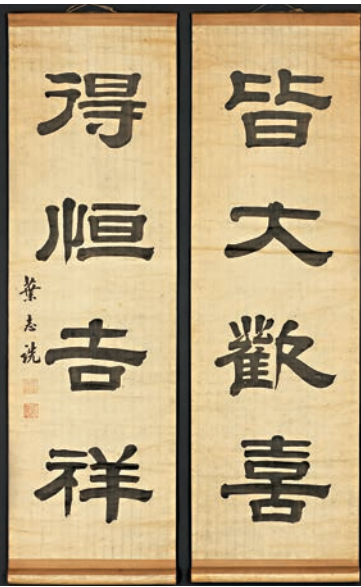 皆大歡喜
得恒吉祥
葉志詵